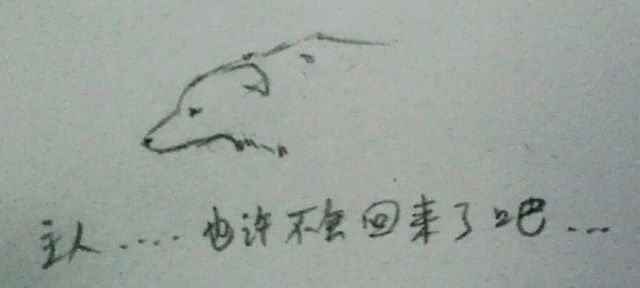 主人....也许不会回来了吧...